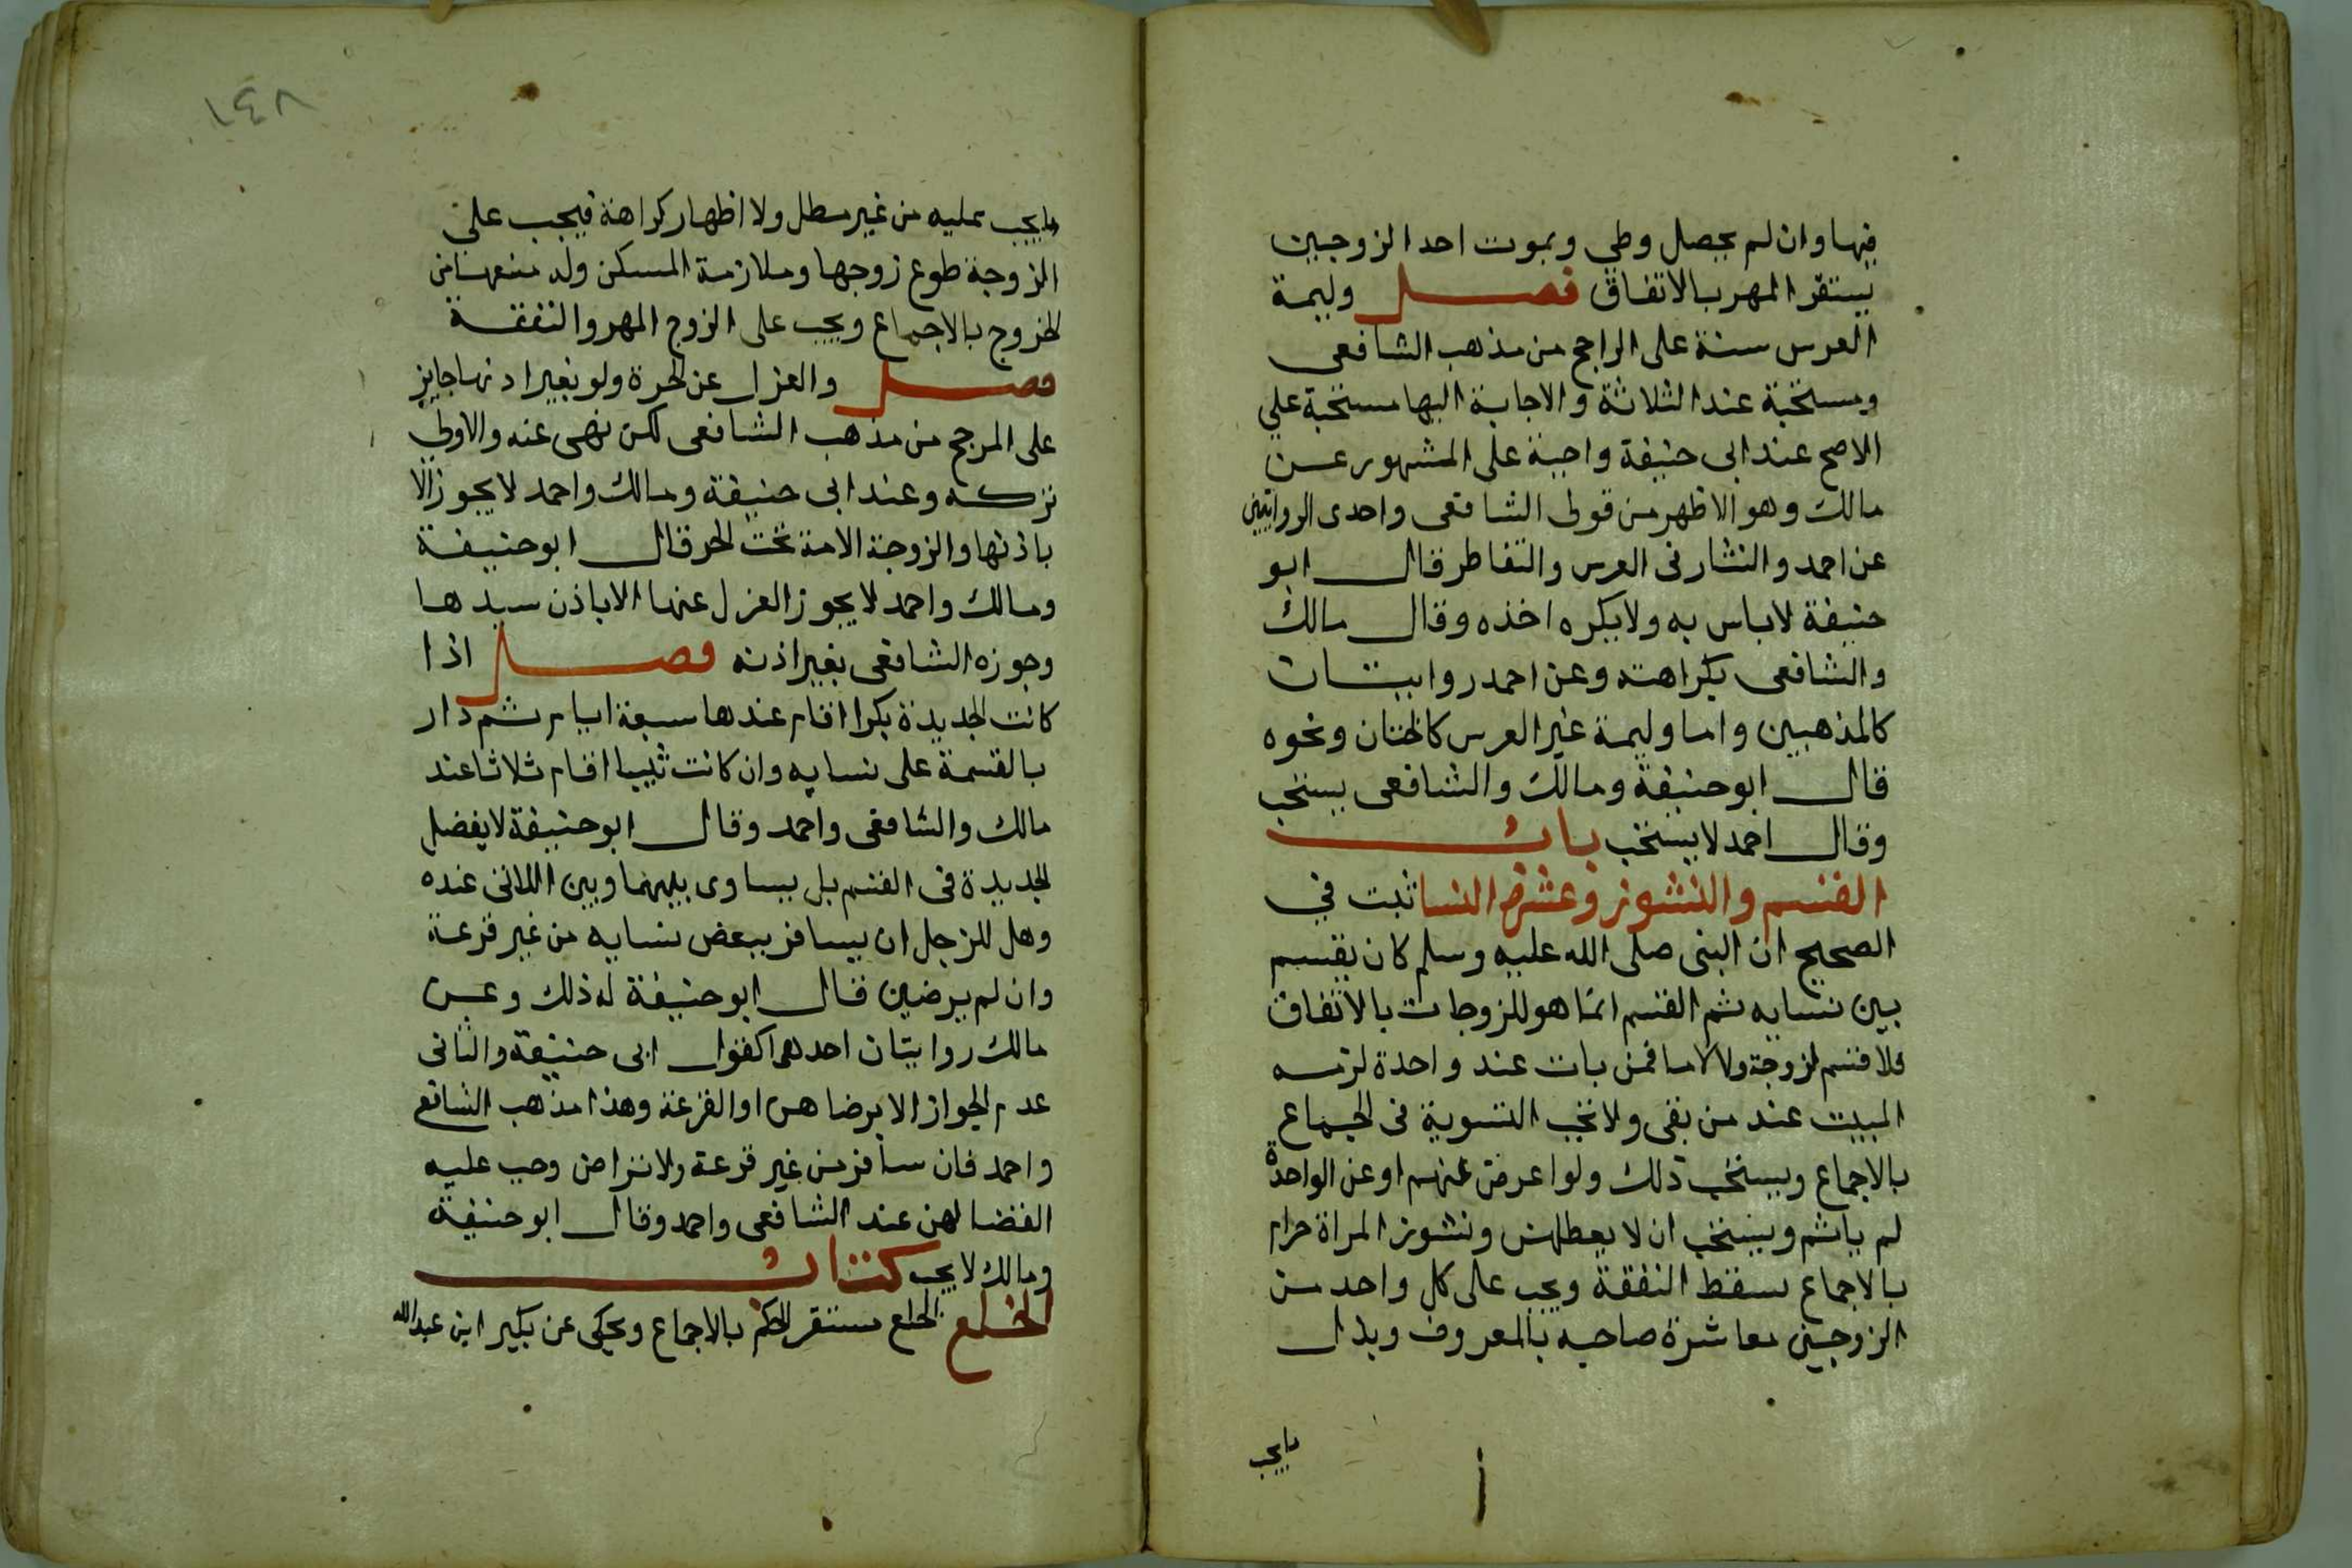 فيها وان لم يحصل وطي وبموت احد الزوجين
يستقر المهر بالاتفاق فصل وليمة
العرس سنة على الراجح من مذهب الشافعى
ومستحبة عند الثلاثة والاجابة اليها مستحبة علي
الاصح عند ابى حنيفة واجبة على المشهور عن
مالك وهو الاظهر من قولى الشافعى واحدى الروايتين
عن احمد والنثار فى العرس والتقاطر قال ابو
حنيفة لاباس به ولا يكره اخذه وقال مالك
والشافعى بكراهته وعن احمد روايتان
كالمذهبين واما وليمة غير العرس كالختان ونحوه
قال ابو حنيفة ومالك والشافعى يستحب
وقال احمد لا يستحب باب
القسم والنشوز وعشرة النسا ثبت في
الصحيح ان النبى صلى الله عليه وسلم كان يقسم
بين نسايه ثم القسم انما هو للزوجات بالاتفاق
فلا قسم لزوجة ولا لاما فمن بات عند واحدة لزمه
المبيت عند من بقى ولا تجب التسوية فى الجماع
بالاجماع ويستحب ذلك ولو اعرض عنهم او عن الواحدة
لم ياثم ويستحب ان لا يعطلهن ونشوز المراة حرام
بالاجماع يسقط النفقة ويجب على كل واحد من
الزوجين معاشرة صاحبه بالمعروف وبذل
مايجب
١٤٨
مايجب عليه من غير مطل ولا اظهار كراهة فيجب على
الزوجة طوع زوجها وملازمة المسكن وله منعها من
الخروج بالاجماع ويجب على الزوج المهر والنفقة
فصل والعزل عن الحرة ولو بغير اذنها جايز
على المرجح من مذهب الشافعى لكن نهى عنه والاولي
تركه وعند ابى حنيفة ومالك واحمد لا يجوز الا
باذنها والزوجة الامة تحت الحر قال ابو حنيفة
ومالك واحمد لا يجوز العزل عنها الا باذن سيدها
وجوزه الشافعى بغير اذنه فصل اذا
كانت الجديدة بكرا اقام عندها سبعة ايام ثم دار
بالقسمة على نسايه وان كانت ثيبا اقام ثلاثا عند
مالك والشافعى واحمد وقال ابو حنيفة لا يفضل
الجديدة فى القسم بل يساوى بينهما وبين اللاتى عنده
وهل للرجل ان يسافر ببعض نسايه من غير قرعة
وان لم يرضين قال ابو حنيفة له ذلك وعن
مالك روايتان احدهما كقول ابى حنيفة والثانى
عدم الجواز الا برضاهن او القرعة وهذا مذهب الشافعي
واحمد فان سافر من غير قرعة ولا تراض وجب عليه
القضا لهن عند الشافعى واحمد وقال ابو حنيفة
ومالك لا يجب كتاب
الخلع الخلع مستقر الحكم بالاجماع ويحكى عن بكير ابن عبد الله